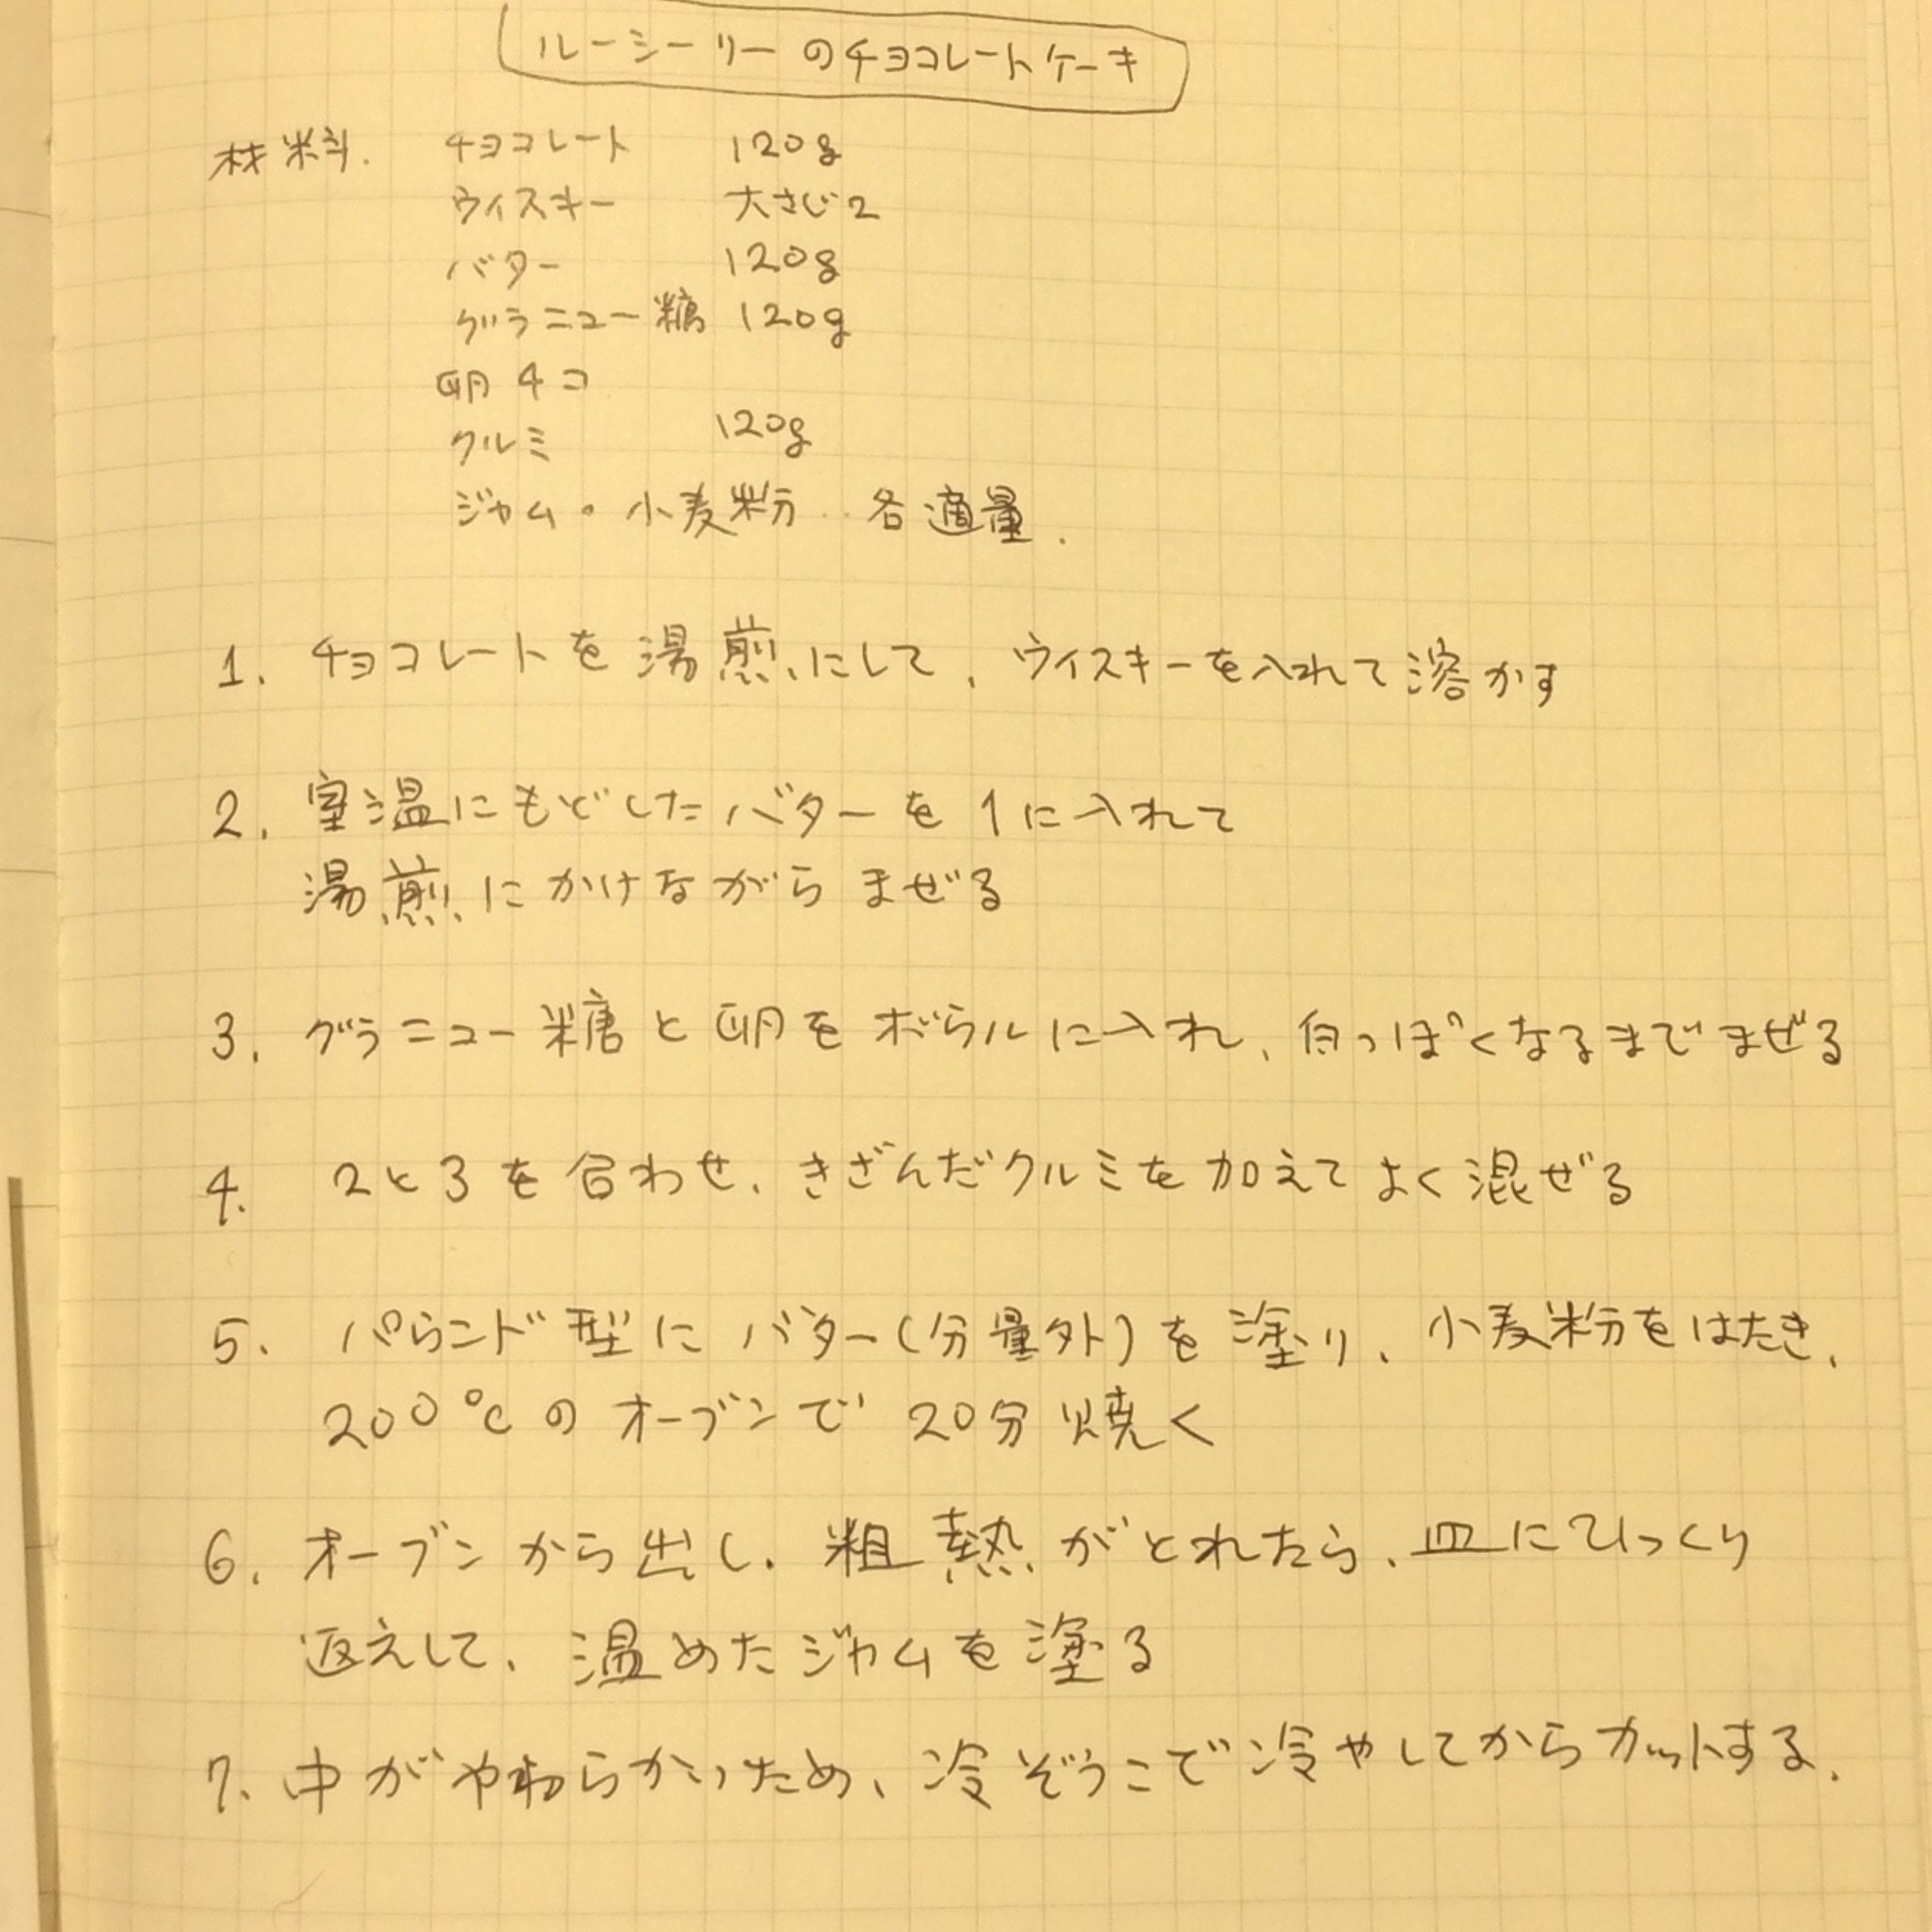 ルーシーリーのチョコレートケーキ
材料. チョコレート 120g
ウィスキー 大さじ2
バター 120g
グラニュー糖 120g
卵 4コ
クルミ 120g
ジャム・小麦粉‥各適量.
1. チョコレートを湯煎にして、ウイスキーを入れて溶かす
2. 室温にもどしたバターを1に入れて
湯煎にかけながらまぜる
3. グラニュー糖と卵をボウルに入れ、白っぽくなるまでまぜる
4. 2と3を合わせ、きざんだクルミを加えてよく混ぜる
5. パウンド型にバター(分量外)を塗り、小麦粉をはたき、
200℃のオーブンで20分焼く
6. オーブンから出し、粗熱がとれたら、皿にひっくり
返えして、温めたジャムを塗る
7. 中がやわらかいため、冷ぞうこで冷やしてからカットする.